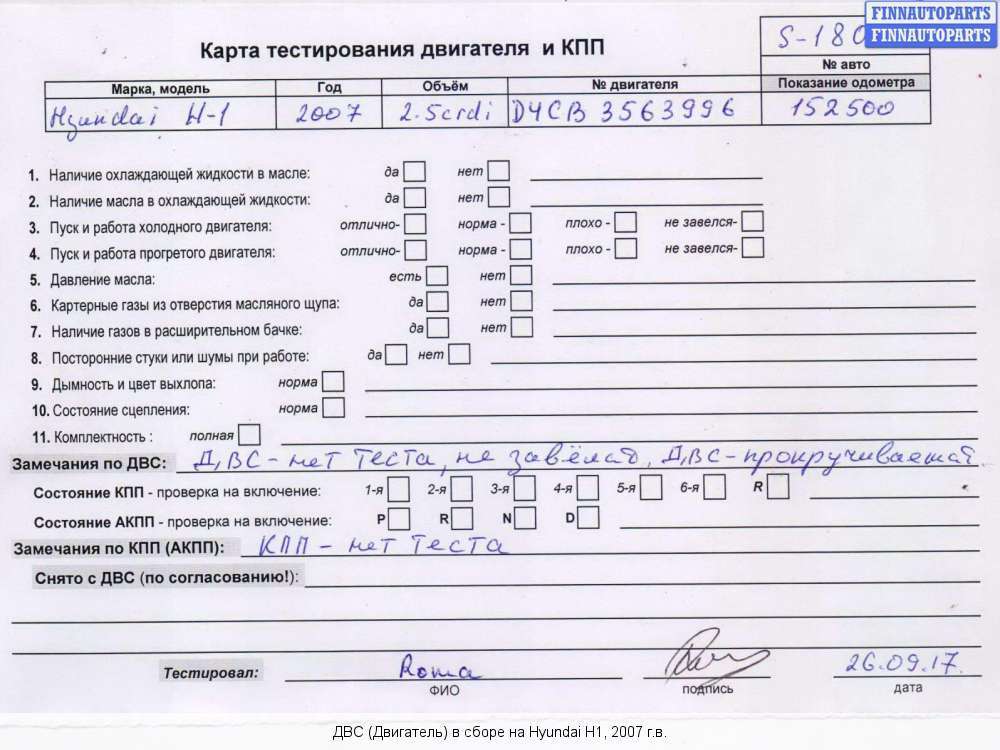 FINNAUTOPARTS
FINNAUTOPARTS
S-180
Карта тестирования двигателя и КПП
№ авто
Марка, модель Год Объём № двигателя Показание одометра
Hyundai H-1 2007 2.5crdi D4CB 3563996 152500
1. Наличие охлаждающей жидкости в масле: да нет
2. Наличие масла в охлаждающей жидкости: да нет
3. Пуск и работа холодного двигателя: отлично- норма - плохо - не завелся-
4. Пуск и работа прогретого двигателя: отлично- норма - плохо - не завелся-
5. Давление масла: есть нет
6. Картерные газы из отверстия масляного щупа: да нет
7. Наличие газов в расширительном бачке: да нет
8. Посторонние стуки или шумы при работе: да нет
9. Дымность и цвет выхлопа: норма
10. Состояние сцепления: норма
11. Комплектность : полная
Замечания по ДВС: ДВС-нет теста, не завёлся, ДВС-прокручивается.
Состояние КПП - проверка на включение: 1-я 2-я 3-я 4-я 5-я 6-я R
Состояние АКПП - проверка на включение: P R N D
Замечания по КПП (АКПП): КПП - нет теста
Снято с ДВС (по согласованию!):
Тестировал: Roma 26.09.17.
ФИО подпись дата
ДВС (Двигатель) в сборе на Hyundai H1, 2007 г.в.